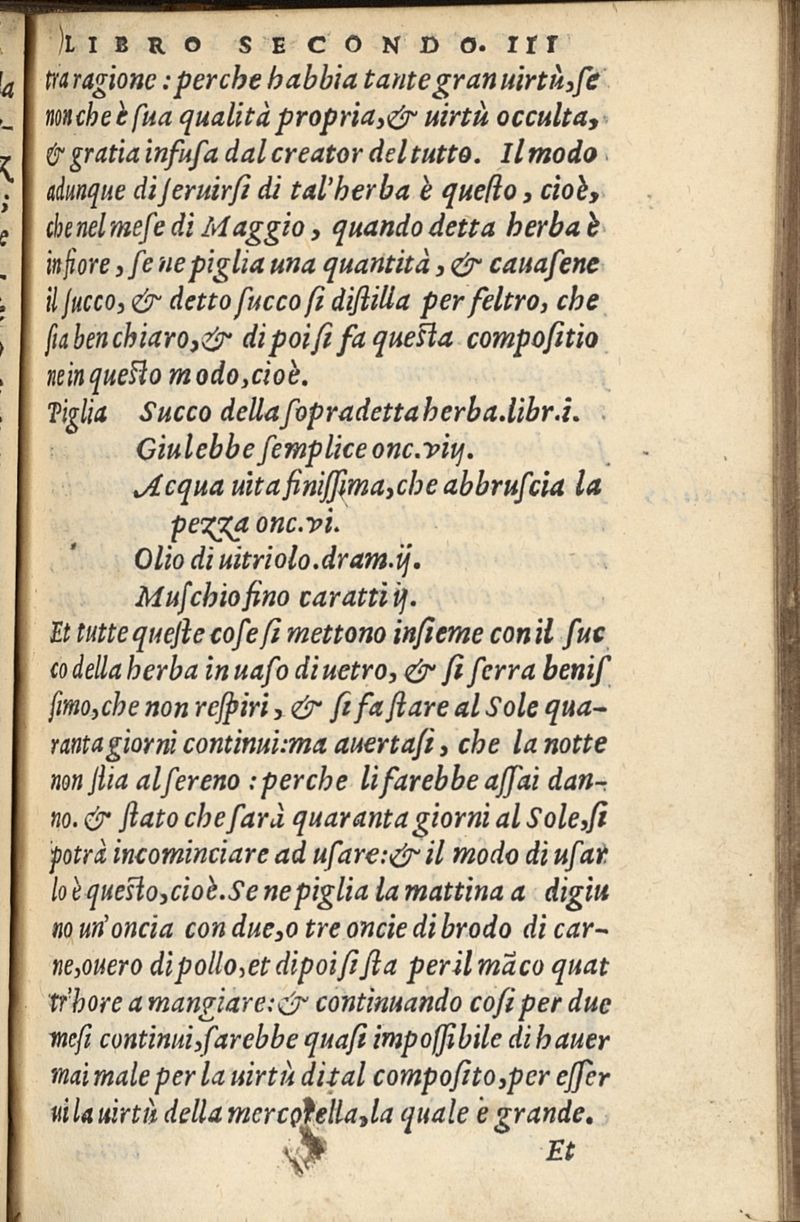 LIBRO SECONDO. III
tra ragione: perche habbia tante gran uirtù, se
non che è sua qualità propria, & uirtù occulta,
& gratia infusa dal creator del tutto. Il modo
adunque di seruirsi di tal'herba è questo, cioè,
che nel mese di Maggio, quando detta herba è
in fiore, se ne piglia una quantità, & cauasene
il succo, & detto succo si distilla per feltro, che
sia ben chiaro, & di poi si fa questa compositio
ne in questo modo, cioè.
Piglia Succo della sopradetta herba. libr. i.
Giulebbe semplice onc. viij.
Acqua uita finissima, che abbruscia la
pezza onc. vi.
Olio di uitriolo. dram. ij.
Muschio fino caratti ij.
Et tutte queste cose si mettono insieme con il suc
co della herba in uaso di uetro, & si serra benis
simo, che non respiri, & si fa stare al Sole qua-
ranta giorni continui: ma auertasi, che la notte
non stia al sereno: perche li farebbe assai dan-
no. & stato che sarà quaranta giorni al Sole, si
potrà incominciare ad usare: & il modo di usar
lo è questo, cioè. Se ne piglia la mattina a digiu
no un'oncia con due, o tre oncie di brodo di car-
ne, ouero di pollo, et dipoi si sta per il mãco quat
tr'hore a mangiare: & continuando cosi per due
mesi continui, sarebbe quasi impossibile di hauer
mai male per la uirtù di tal composito, per esser
ui la uirtù della mercorella, la quale è grande.
Et